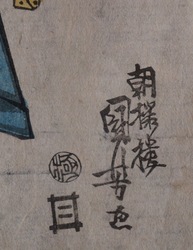 朝櫻樓
國芳画
極